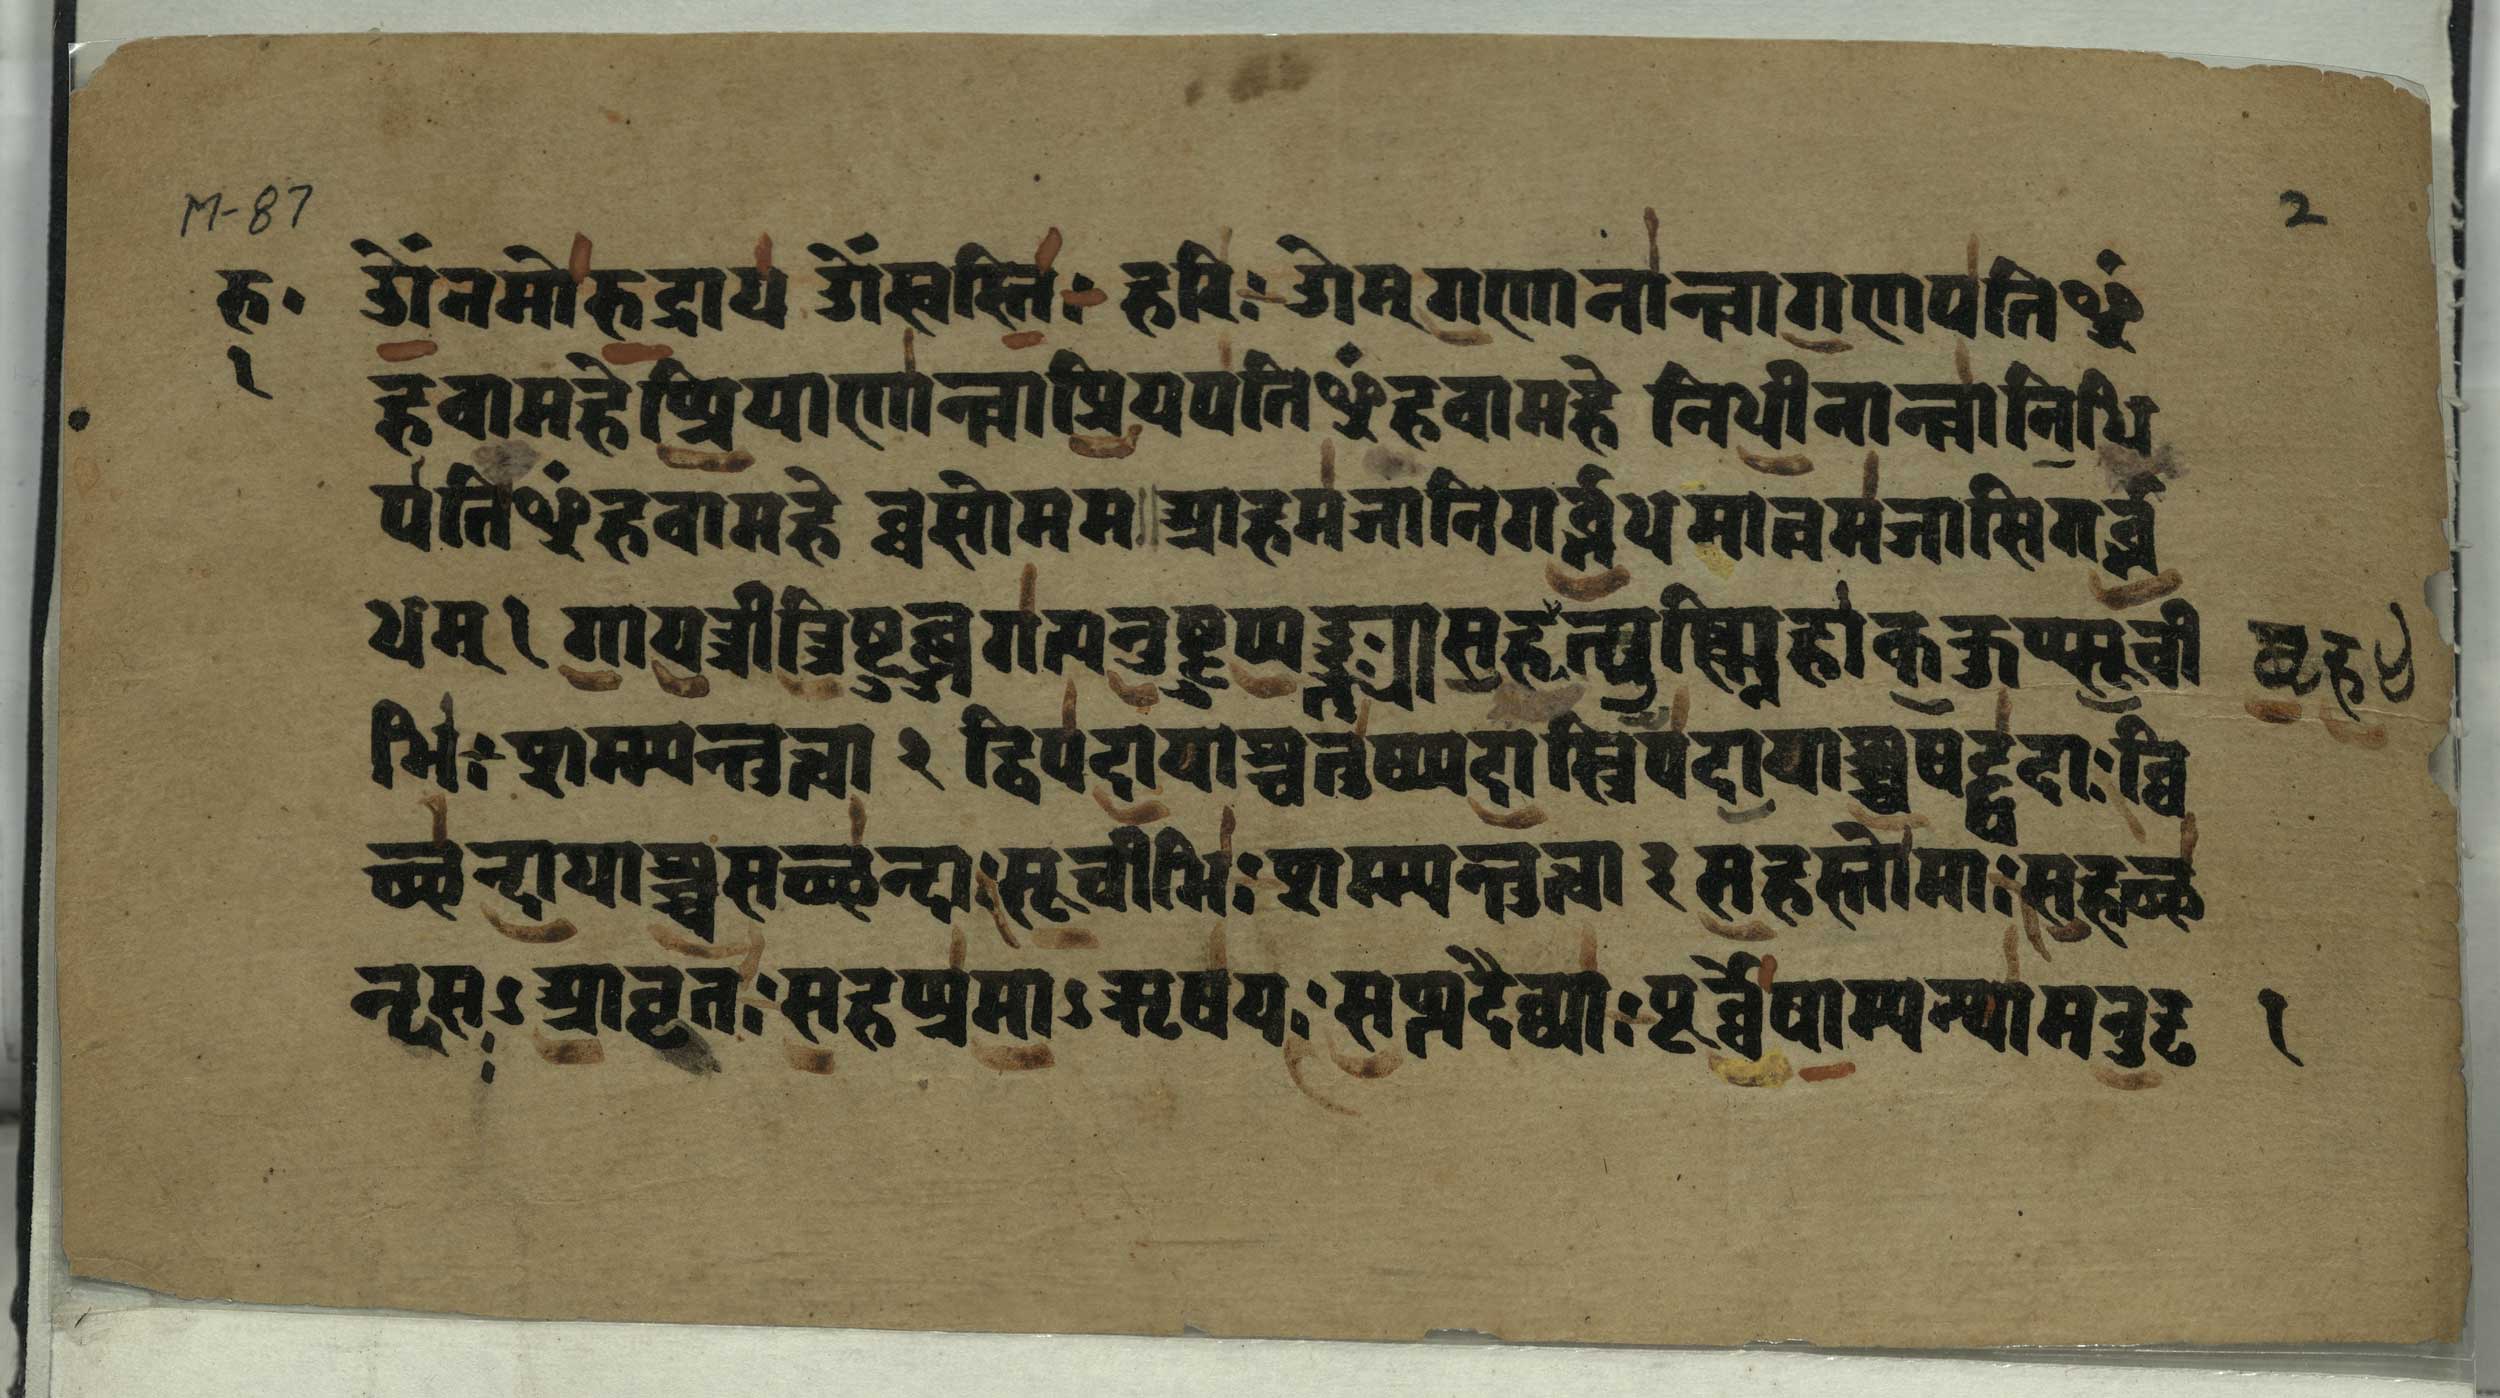 M-87
2
रु॰ ॐ नमो रुद्राय ॐ स्वस्तिः हरिः ओम् गणानान्त्वा गणपतिꣳ
१ हवामहे प्प्रियाणान्त्वा प्रियपतिꣳ हवामहे निधीनान्त्वा निधि
पतिꣳ हवामहे व्वसो मम ॥ आहमजानि गर्ब्भधमात्वमजासि गर्ब्भ
धम् १ गायत्री त्रिष्टुब्जगत्यनुष्टुप्पङ्क्त्या सह बृहत्युष्णिहा ककुप्प्सूची
भिः शम्म्यन्तु त्वा २ द्विपदा याश्चतुष्प्पदास्त्रिपदा याश्च षट्पदाः व्वि
च्छन्दा याश्च सच्छन्दाः सूचीभिः शम्म्यन्तु त्वा ३ सहस्तोमाः सहच्छ
न्दसऽ आवृतः सहप्प्रमाऽ ऋषयः सप्प्त दैव्याः पूर्व्वेषाम्पन्थामनुदृ १